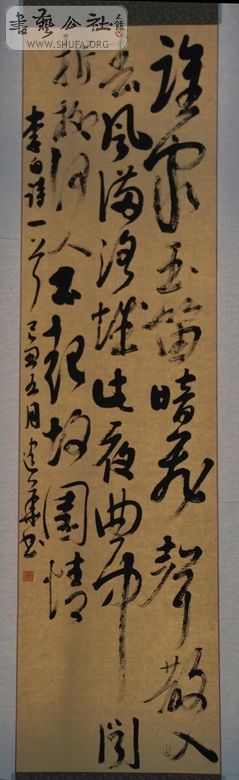 書藝公社
www.SHUFA.ORG
誰家玉笛暗飛聲散入
春風滿洛城此夜曲中聞
折柳何人不起故園情
李白詩一首 己丑五月 華書